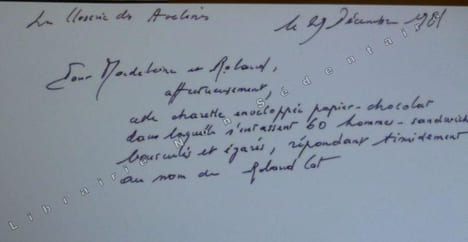 La Closerie des Avelines le 29 Décembre 1981
Pour Madeleine et Roland,
affectueusement,
cette charette enveloppée papier-chocolat
dans laquelle s'entassent 60 hommes-sandwichs
bousculés et égarés, répondant timidement
au nom de Roland Cat
Librairie La Sédentaire